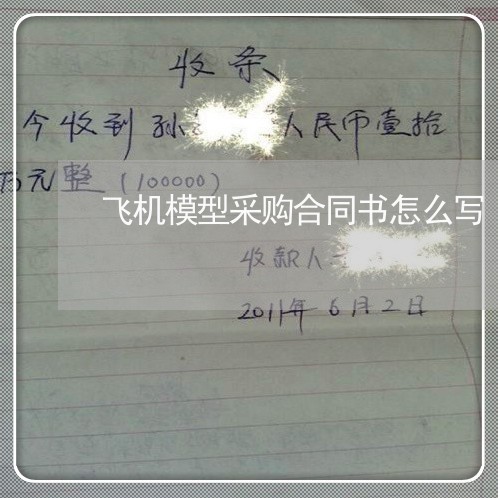 收条
今收到孙 人民币壹拾
万元整（100000）
飞机模型采购合同书怎么写
收款人
2011年6月2日